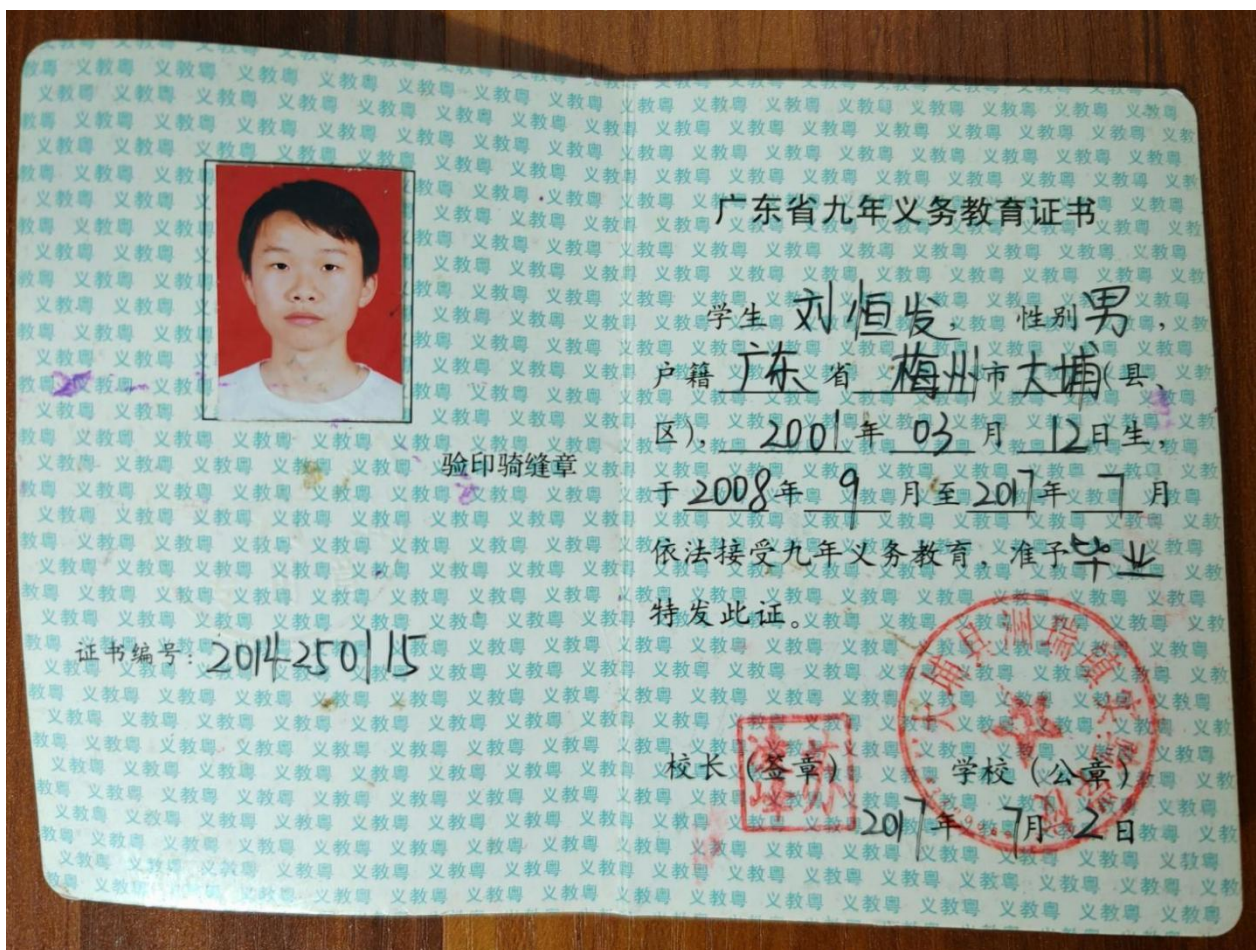 验印骑缝章
证书编号：2014250115
广东省九年义务教育证书
学生 刘恒发， 性别 男，
户籍 广东 省 梅州 市 大埔（县、
区），2001 年 03 月 12 日生，
于 2008 年 9 月至 2017 年 7 月
依法接受九年义务教育，准予 毕业
特发此证。
校长（签章） 学校（公章）
2017 年 7 月 2 日